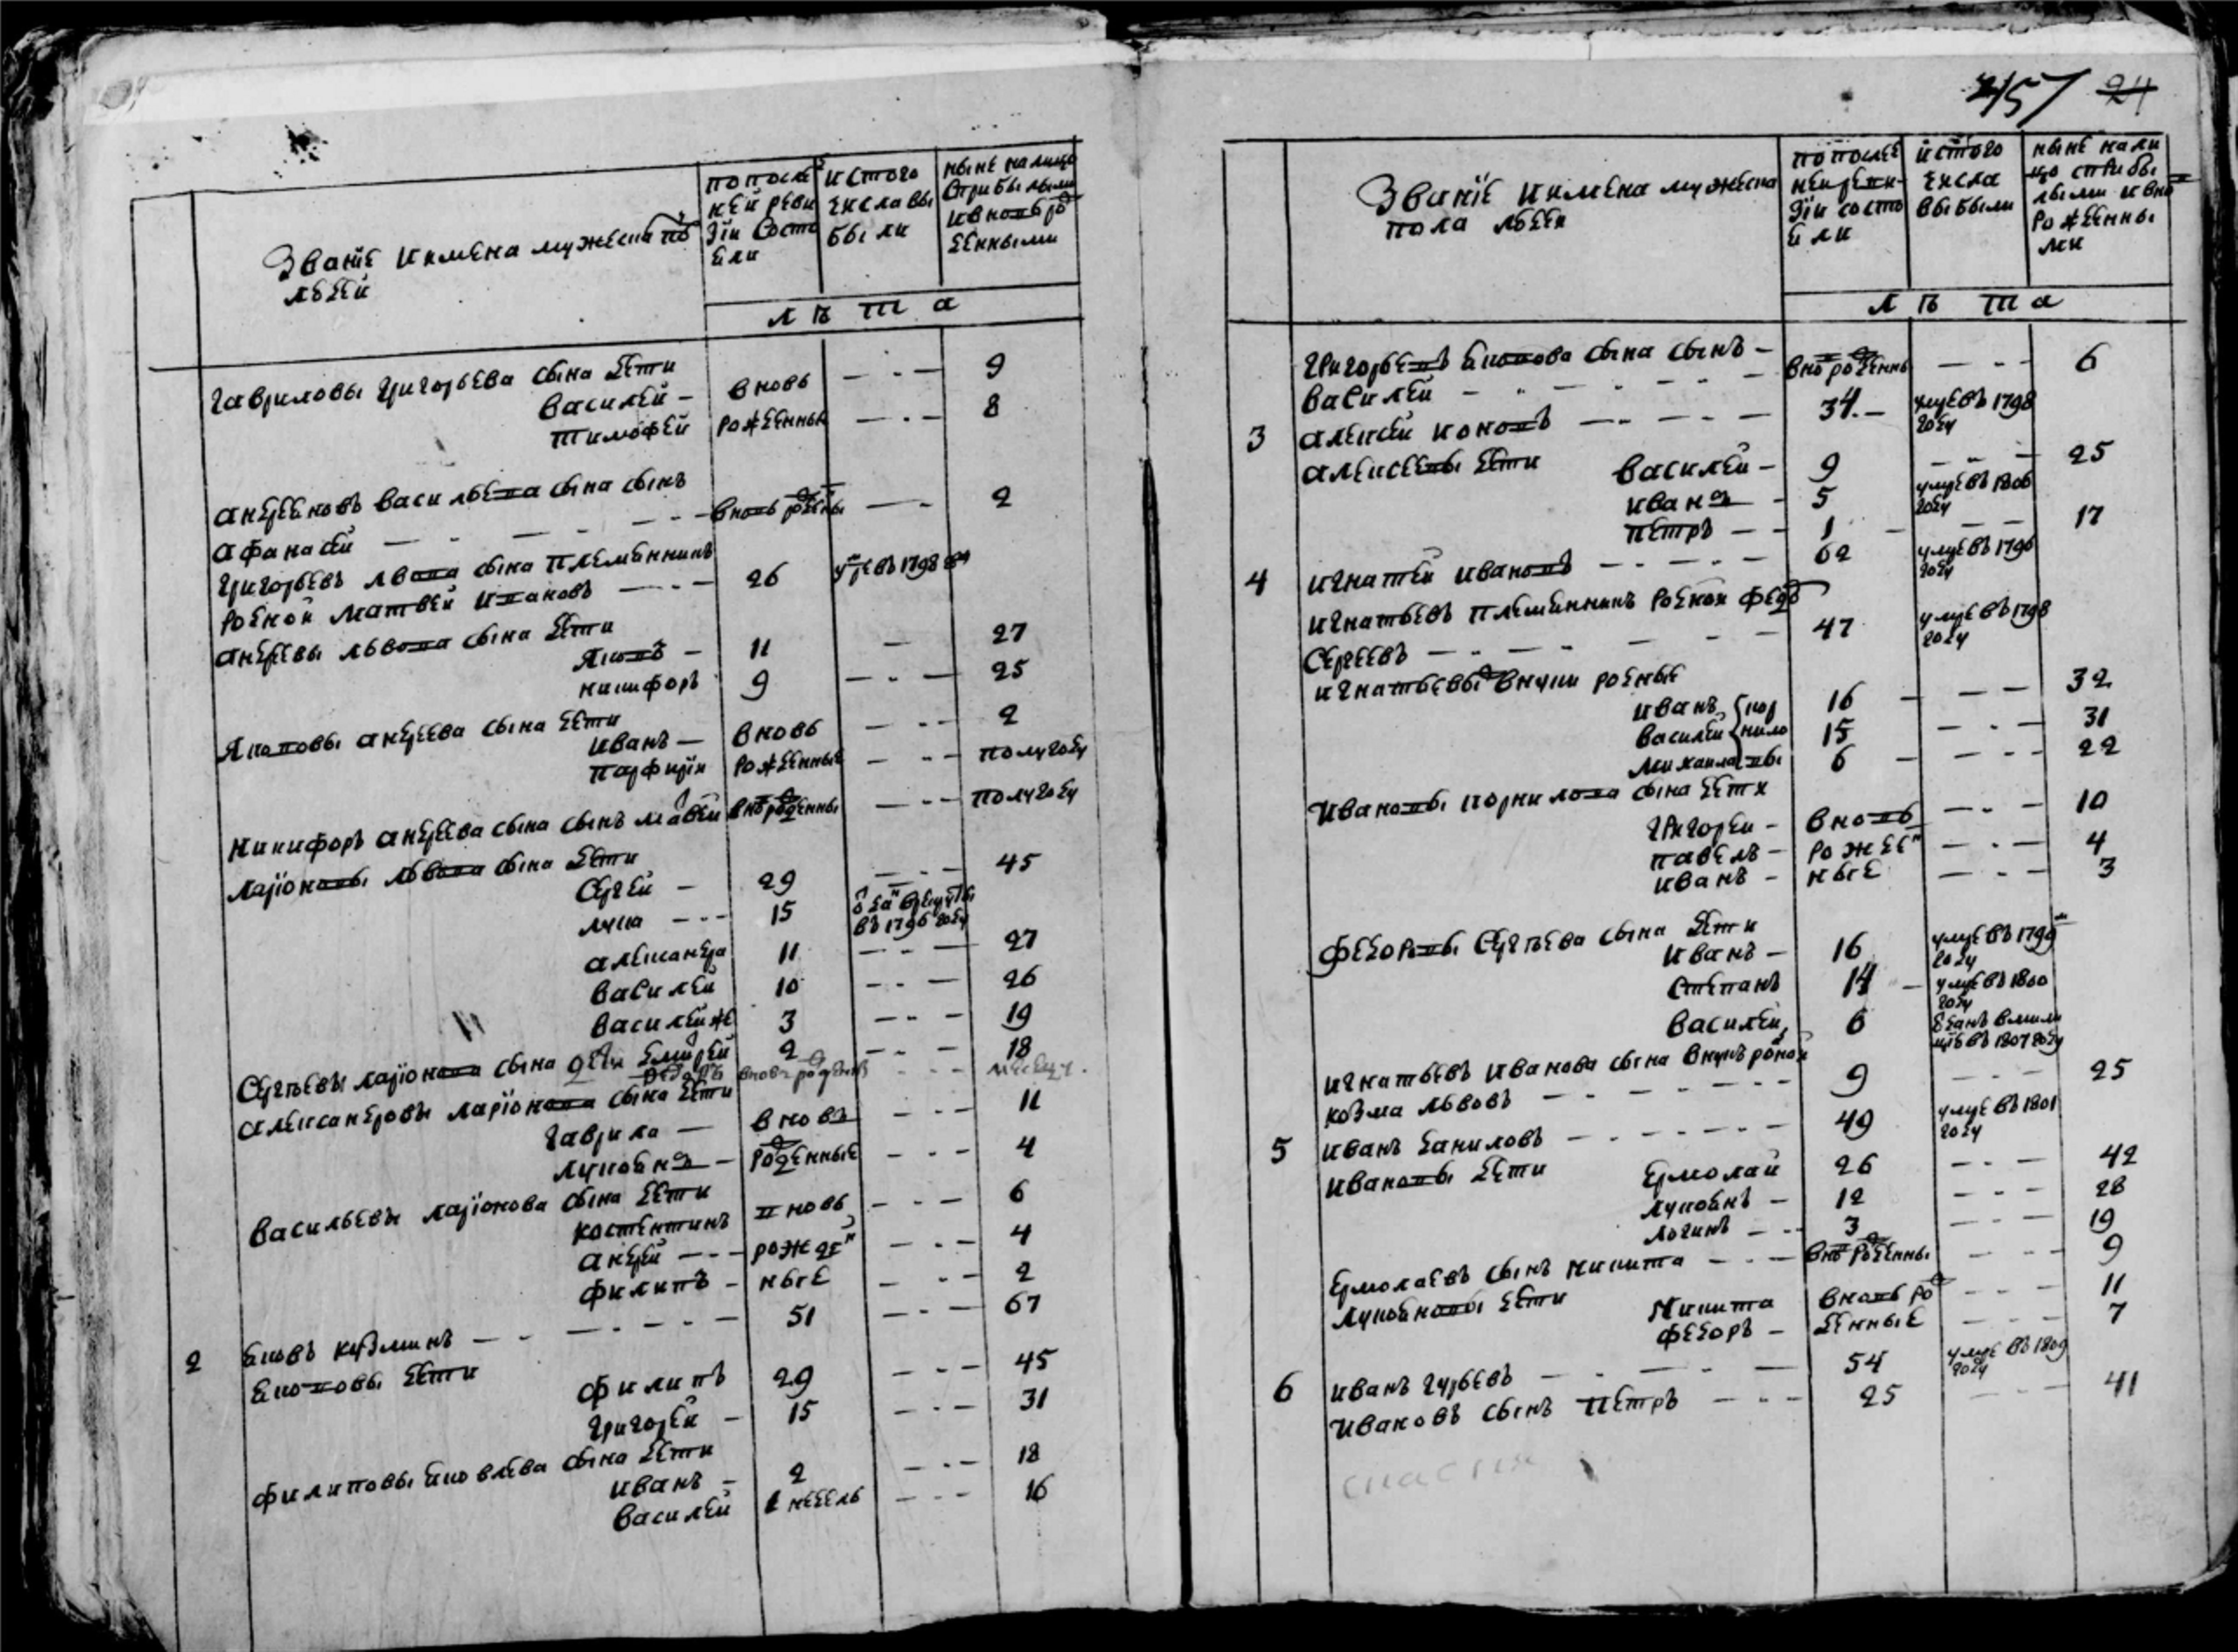 званіе и имена мужеска по
лъдей
по после
ней реви
зіи состо
яли
и стого
числа вы
были
ныне налицо
сприбылыми
и вновь ро
жденными
лѣта
гавриловы григорьева сына дети
василей — вновь — - — 9
тимофей рожденныя — - — 8
андреяновъ васильева сына сынъ
афанасей — - — - - - - вновь рожденны — - — 2
григорьевъ львова сына племянникъ
родной матвей ивановъ — - - — 26 умре въ 1798 году
андреевы львова сына дети
яковъ — 11 — 27
никифоръ 9 — - — 25
яковлевы андреева сына дети
иванъ — вновь — - — 2
парфирій рожденные — - — полугоду
никифоръ андреева сына сынъ мавей вновь рожденны — - - полугоду
ларіоновы львова сына дети
сергей — 29 — - — 45
лука — - - 15 отдан в рекруты
въ 1796 году
александра 11 — - — 27
василей 10 — - — 26
василей же 3 — - — 19
дмитрей 2 — - — 18
сергѣевы ларіонова сына дети федоръ вновь рожденны - - - месецу.
александровы ларіонова сына дети
гаврила — вновь — - — 11
лукоянъ — рожденные — - — 4
васильевы ларіонова сына дети
костентинъ вновь — - — 6
андрей — - - рожден — - — 4
филипъ — ные — - — 2
2 яковъ кузминъ — - — - - - 51 — - — 67
яковлевы дети
филипъ 29 — - — 45
григорей — 15 — - — 31
филиповы яковлева сына дети
иванъ — 2 — - — 18
василей 1 недель — - — 16
457 24
званіе и имена мужеска
пола лъдей
по после
ней реви
зіи состо
яли
и стого
числа
выбыли
ныне нали
цо с прибы
лыми и вно
рожденны
ми
лѣта
григорьевъ яковлева сына сынъ —
василей — - — - - - — вно рожденны — - - 6
3 алексей кононовъ — - - - — 34. — умре въ 1798
году
алексеевы дети василей — 9 — - — 25
иванъ — 5 умре въ 1806
году
петръ — - 1 — — 17
4 игнатей ивановъ — - - — 62 умре въ 1796
году
игнатьевъ племянникъ родной федоръ
сергеевъ — - - — - - — 47 умре въ 1798
году
игнатьевы внуки родные
иванъ кор 16 — - — 32
василей нило 15 — - — 31
михаила вы 6 — - — 22
ивановы корнилова сына дети
григорей — вновь — - — 10
павелъ — рожден — - — 4
иванъ — ные — - — 3
федоровы сергѣева сына дети
иванъ — 16 умре въ 1799
году
степанъ 14 — умре въ 1800
году
василей 6 отданъ в мили
цію въ 1807 году
игнатьевъ иванова сына внукъ родной
козма львовъ — - - - - — 9 — - — 25
5 иванъ даниловъ — - - - - — 49 умре въ 1801
году
ивановы дети ермолай 26 — - — 42
лукоянъ — 12 — - — 28
логинъ — - 3 — - — 19
ермолаевъ сынъ никита — - — вно рожденны — - — 9
лукояновы дети никита вновь ро — - — 11
федоръ — жденные — - — 7
6 иванъ гурьевъ — - — - — 54 умре въ 1809
году
ивановъ сынъ петръ — - — 25 — - — 41